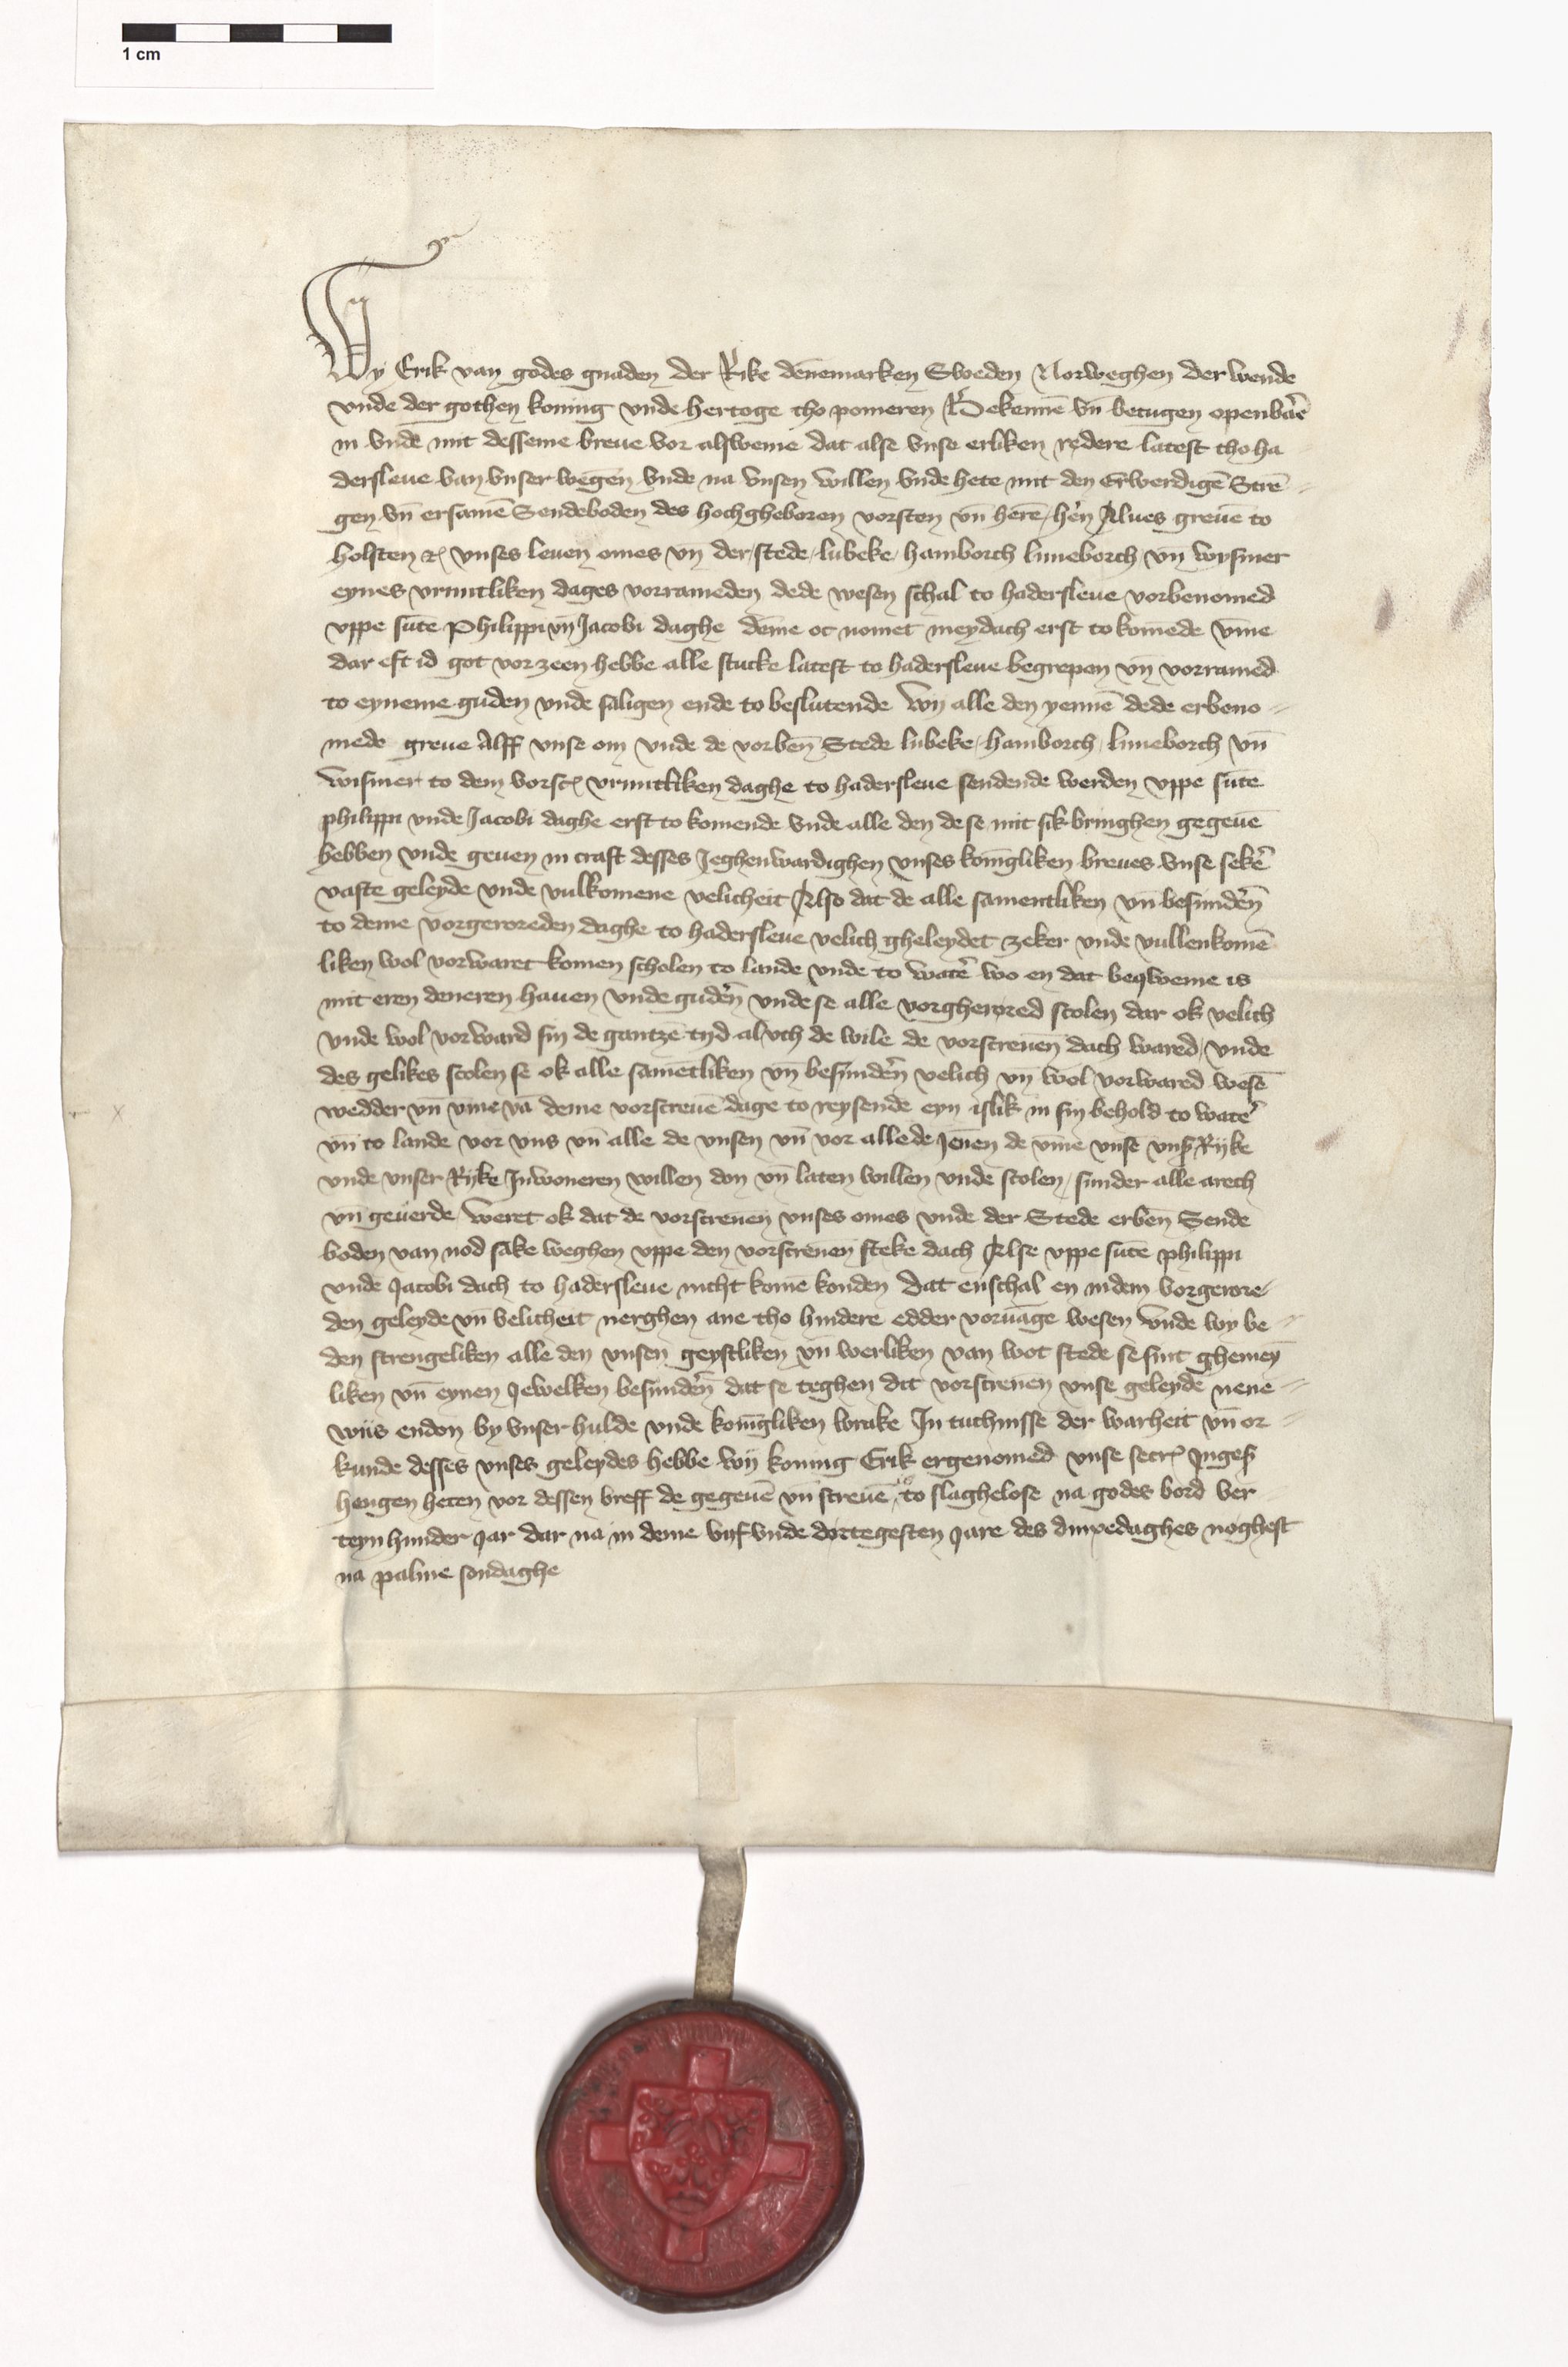 1 cm
Wy Erik van godes gnaden der Rike dēnemarken Sweden Norweghen der wende
vnde der gothen koning vnde hertoge tho pomeren Bekennē vn̄ betugen openbar̄e
in vnde mit desseme breue vor alsweme dat alse vnse erliken redere latest tho ha
dersleue van vnser wegen vnde na vnsen willen vnde hete mit den Erwerdigē Strē
gen vn̄ ersamē Sendeboden des hochgheboren vorsten vn̄ herē her̄n Alues greue to
holsten ꝛc vnses leuen omes vn̄ der stede lubeke hamborch luneborch vn̄ wysmer
eynes vruntliken dages vorrameden dede wesen schal to hadersleue vorbenomed
vppe sūte Philippi vn̄ Jacobi daghe deme oc nomet meydach erst tokomēde vm̄e
dar eft id got vorzeen hebbe alle stucke latest to hadersleue begrepen vn̄ vorramed
to eyneme guden vnde saligen ende to beslutende Wy alle den yennē dede erbeno
mede greue Alff vnse om vnde de vorben̄ Stede lubeke hamborch luneborch vn̄
wismer to dem vorscꝛ vruntliken daghe to hadersleue sendende werden vppe sūte
philippi vnde Jacobi daghe erst to komende vnde alle den de se mit sik bringhen gegeuē
hebben vnde geuen in craft desses Jeghenwardighen vnses konīgliken breues vnse sekēr
vaste geleyde vnde vulkomene velicheit Also dat de alle samentliken vn̄ besundēn
to deme vorgeroreden daghe to hadersleue velich gheleydet zeker vnde vullenkomē
liken wol vorwaret komen scholen to lande vnde to watēr wo en dat beqweme is
mit eren deneren hauen vnde gudēn vnde se alle vorgherored scolen dar ok velich
vnde wol vorward sin de gantze tyd al vth de wile de vorscreuen dach wared vnde
des gelikes scolen se ok alle samētliken vn̄ besundēn velich vn̄ wol vorwared wesē
wedder vn̄ vme vā deme vorscreuē dage to reysende eyn islik in sin behold to watēr
vn̄ to lande vor vns vn̄ alle de vnsen vn̄ vor alle de Jenen de vm̄e vnse vnsꝛ Ryke
vnde vnser Ryke Inwoneren willen don vn̄ laten willen vnde scolen sunder alle arech
vn̄ geuerde weret ok dat de vorscreuen vnses omes vnde der Stede erben̄ Sende
boden van nod sake weghen vppe den vorscreuen steke dach Alse vppe sūte philippi
vnde Jacobi dach to hadersleue nicht komē konden dat enschal en in dem vorgerore
den geleyde vn̄ velicheit nerghen ane tho hindere edder voruāge wesen vnde wy be
den strengeliken alle den vnsen geystliken vn̄ werliken van wot stede se sint ghemey
liken vn̄ eynen Jewelken besundēn dat se teghen dit vorscreuen vnse geleyde nene
wiis endon by vnser hulde vnde konīgliken wrake In tuchnisse der warheit vn̄ or
kunde desses vnses geleydes hebbe wy koning Erik ergenomed vnse secrꝛ Ingesꝛ
hengen heten vor dessen breff de gegeuē vn̄ screuē to slaghelose na godes bord ver
teyn hunder Jar dar na in deme vyf vnde dortegesten Jare des dinxedaghes neghest
na palme sondaghe